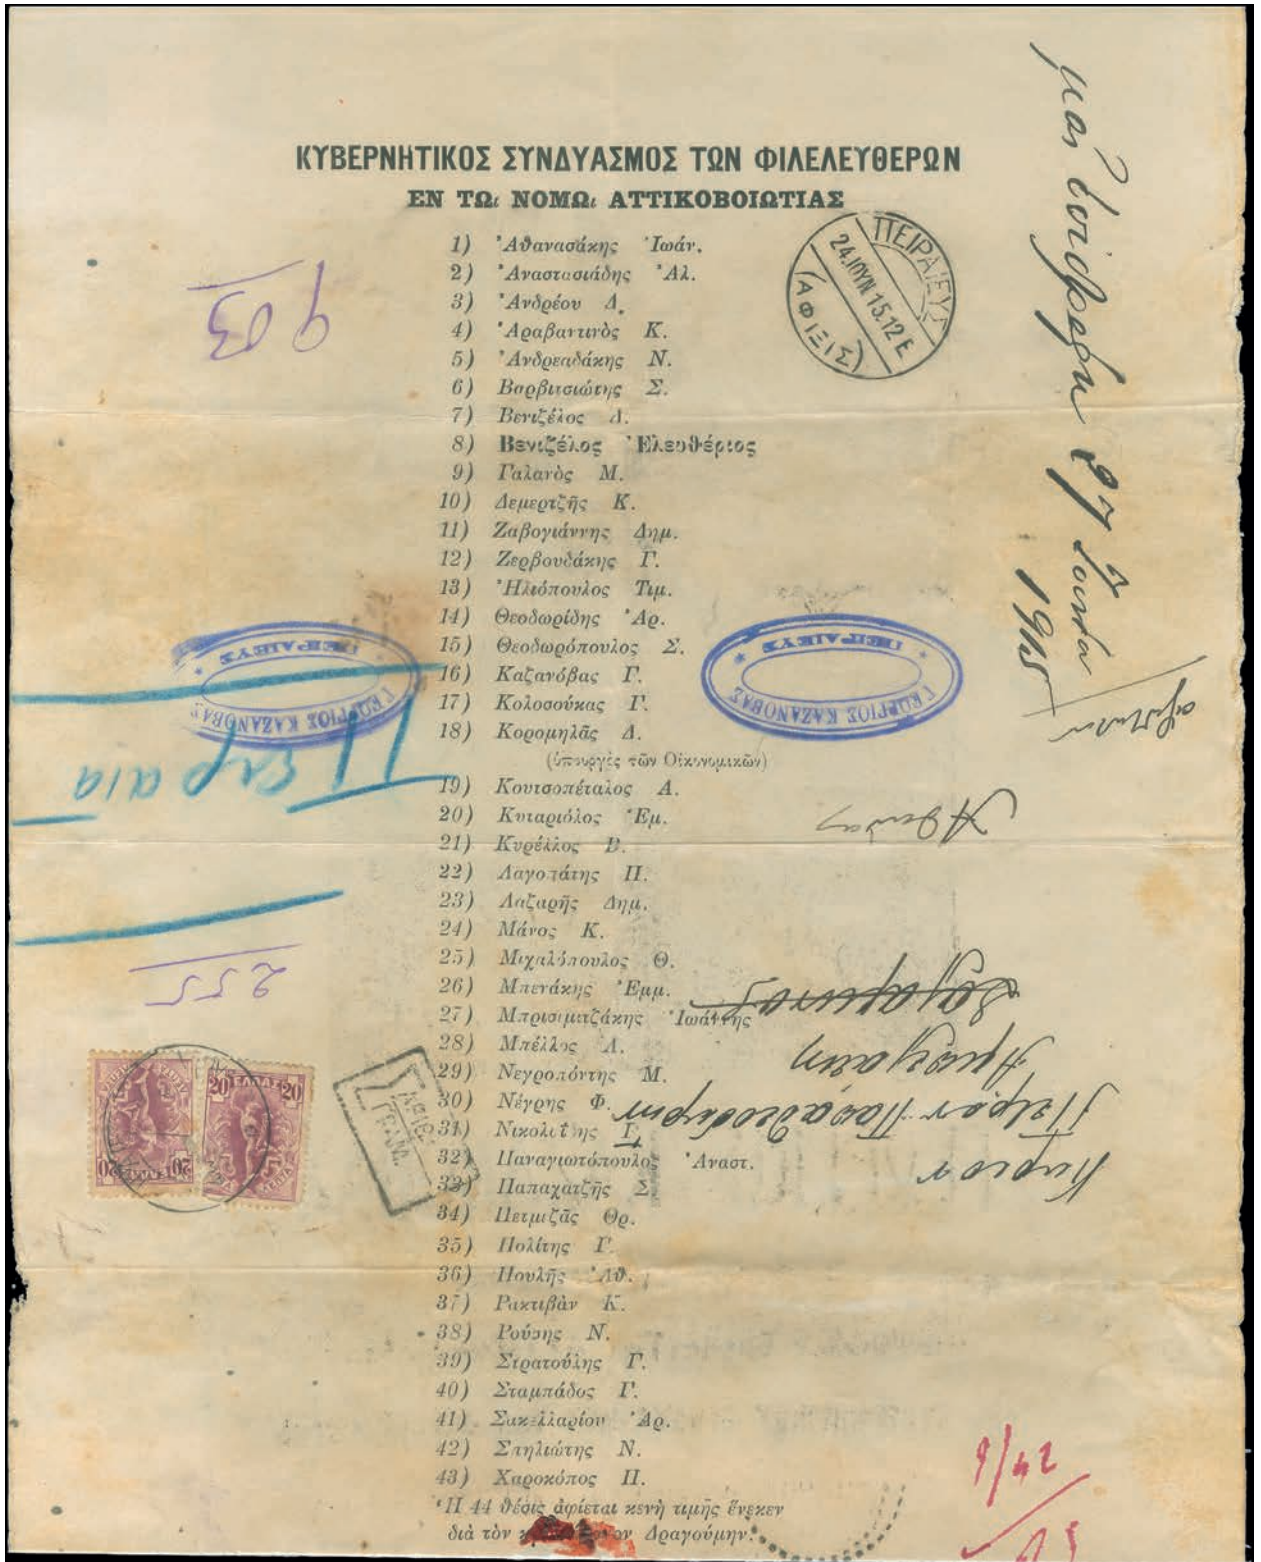 ΚΥΒΕΡΝΗΤΙΚΟΣ ΣΥΝΔΥΑΣΜΟΣ ΤΩΝ ΦΙΛΕΛΕΥΘΕΡΩΝ
ΕΝ ΤΩι ΝΟΜΩι ΑΤΤΙΚΟΒΟΙΩΤΙΑΣ
1) Ἀθανασάκης Ἰωάν.
2) Ἀναστασιάδης Ἀλ.
3) Ἀνδρέου Δ.
4) Ἀραβαντινὸς Κ.
5) Ἀνδρεαδάκης Ν.
6) Βαρβιτσιώτης Σ.
7) Βενιζέλος Δ.
8) Βενιζέλος Ἐλευθέριος
9) Γαλανὸς Μ.
10) Δεμερτζῆς Κ.
11) Ζαβογιάννης Δημ.
12) Ζερβουδάκης Γ.
13) Ἠλιόπουλος Τιμ.
14) Θεοδωρίδης Ἀρ.
15) Θεοδωρόπουλος Σ.
16) Καζανόβας Γ.
17) Κολοσούκας Γ.
18) Κορομηλᾶς Δ.
(ὑπουργὸς τῶν Οἰκονομικῶν)
19) Κουτσοπέταλος Α.
20) Κυταριόλος Ἐμ.
21) Κυρέλλος Β.
22) Λαγοπάτης Π.
23) Λαζαρῆς Δημ.
24) Μάνος Κ.
25) Μιχαλόπουλος Θ.
26) Μπενάκης Ἐμμ.
27) Μπρισιμιτζάκης Ἰωάννης
28) Μπέλλος Λ.
29) Νεγροπόντης Μ.
30) Νέγρης Φ.
31) Νικολέτης Γ.
32) Παναγιωτόπουλος Ἀναστ.
33) Παπαχατζῆς Σ.
34) Πετμεζᾶς Θρ.
35) Πολίτης Γ.
36) Πουλῆς Ἀθ.
37) Ρακτιβὰν Κ.
38) Ρούσης Ν.
39) Στρατούλης Γ.
40) Σταμπάδος Γ.
41) Σακελλαρίου Ἀρ.
42) Σπηλιώτης Ν.
43) Χαροκόπος Π.
Ἡ 44 θέσις ἀφίεται κενὴ τιμῆς ἕνεκεν
διὰ τὸν Δραγούμην.
ΠΕΙΡΑΙΕΥΣ
24.ΙΟΥΝ 15.12 Ε
(ΑΦΙΞΙΣ)
903
ΓΕΩΡΓΙΟΣ ΚΑΖΑΝΟΒΑΣ
* ΠΕΙΡΑΙΕΥΣ *
ΓΕΩΡΓΙΟΣ ΚΑΖΑΝΟΒΑΣ
* ΠΕΙΡΑΙΕΥΣ *
Πειραια
255
20 ΕΛΛΑΣ 20
20 20
1915
Κύριον
Πέτρον Παπαθεοδώρου
Ἀμπελάκη
Σαλαμῖνος
Αθηνας
9/42